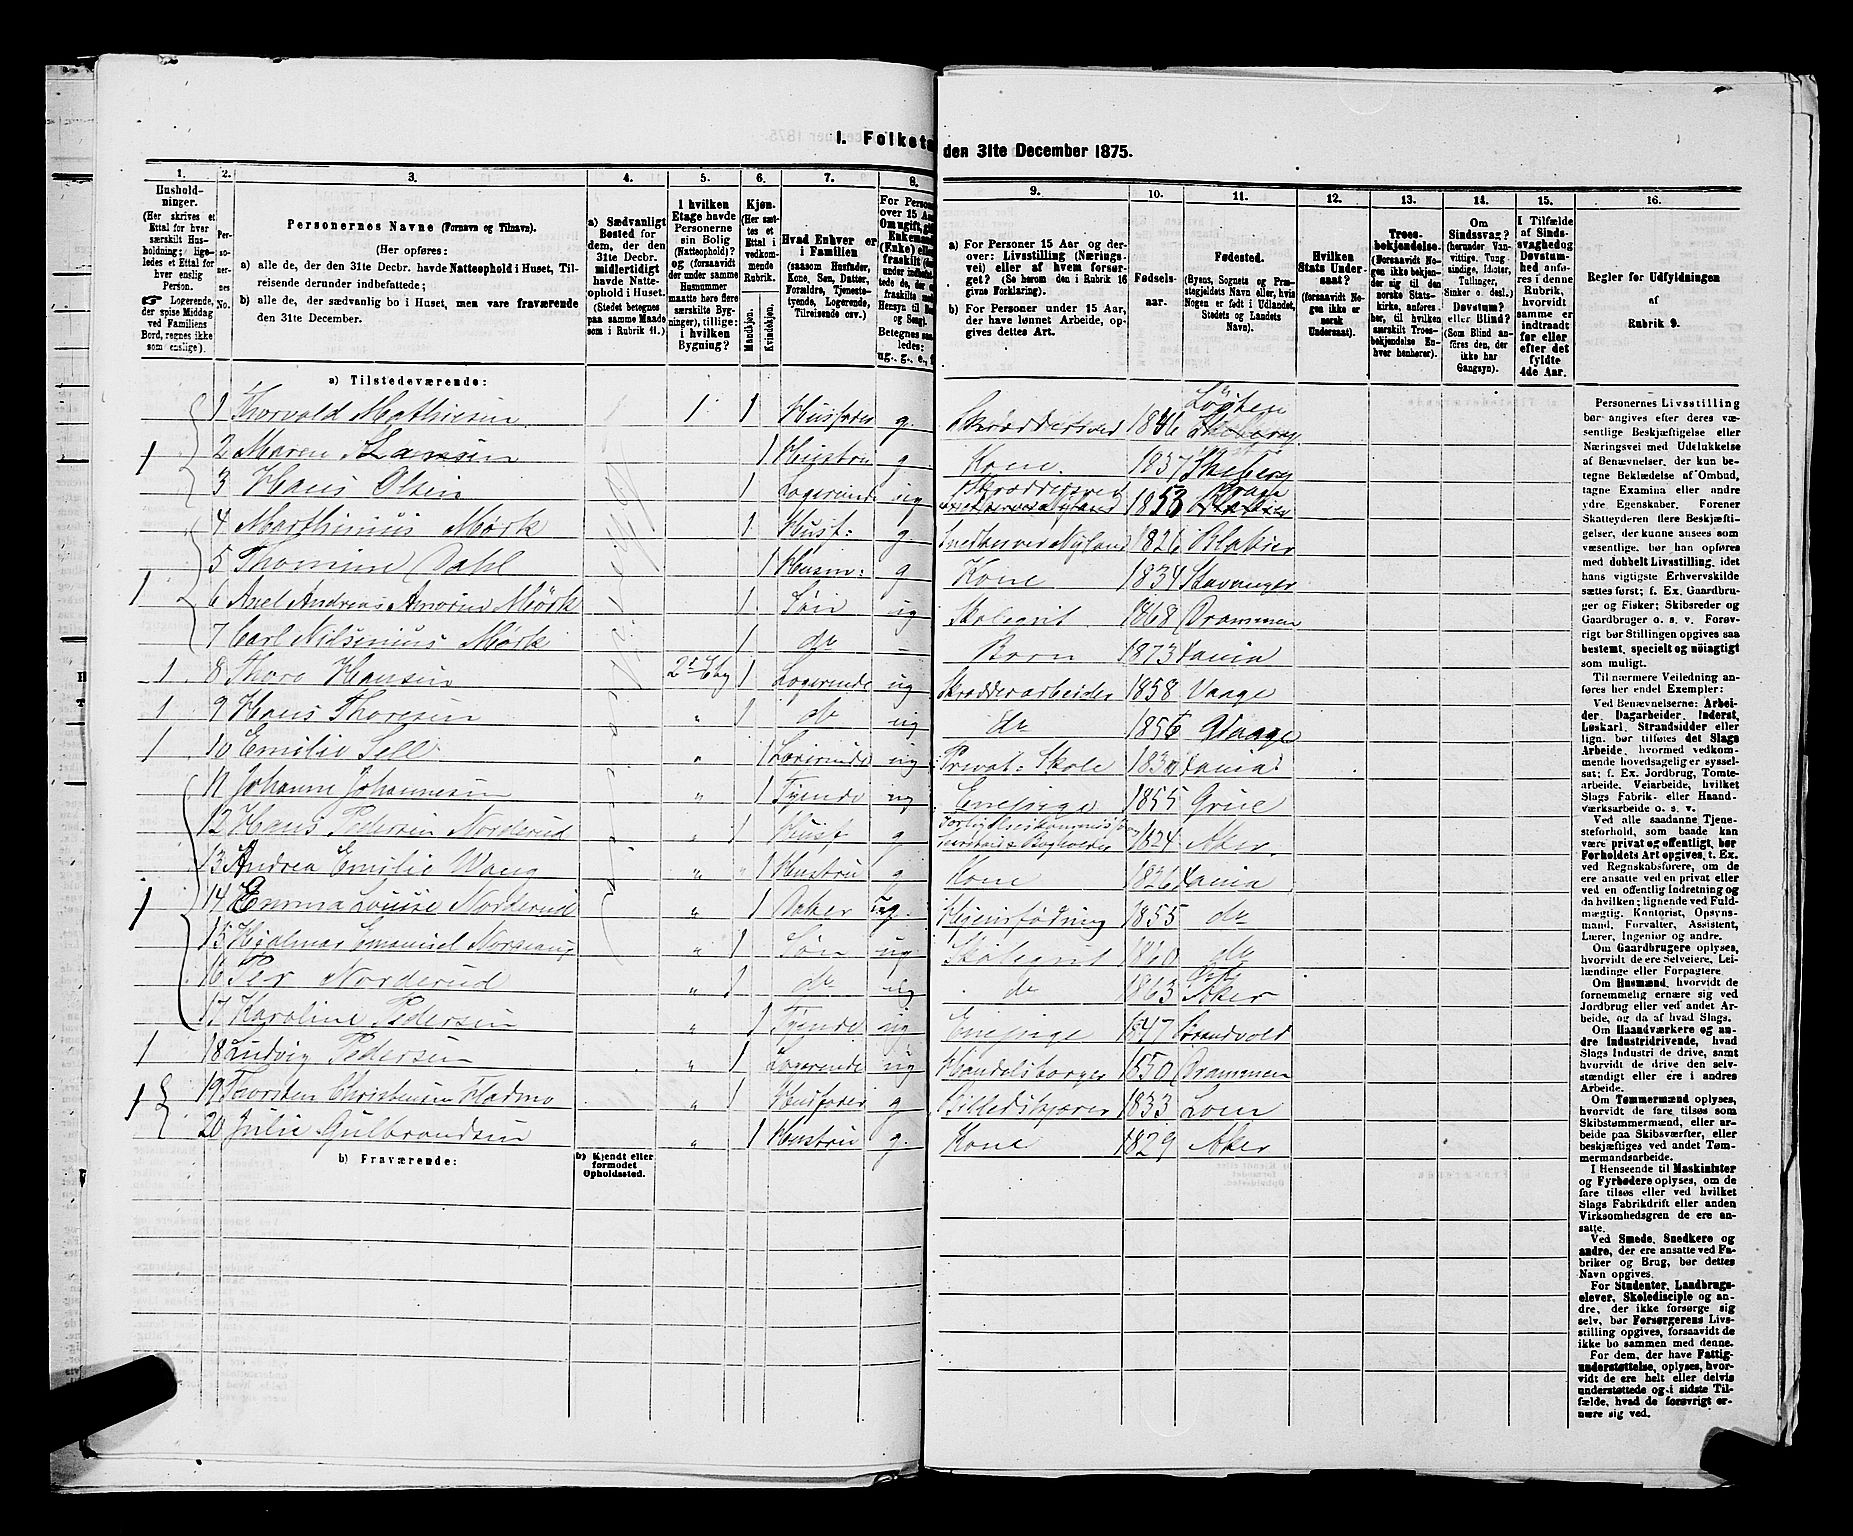 I. Folketæ
den 31te December 1875.
1. 2. 3. 4. 5. 6. 7. 8. 9. 10. 11. 12. 13. 14. 15. 16.
Hushold-
ninger.
(Her skrives et
Ettal for hver
særskilt Hus-
holdning; lige-
ledes et Ettal for
hver enslig
Person.
☞ Logerende,
der spise Middag
ved Familiens
Bord, regnes ikke
som enslige).
Per-
so-
ner-
nes
No.
Personernes Navne (Fornavn og Tilnavn).
(Her opføres:
a) alle de, der den 31te Decbr. havde Natteophold i Huset, Til-
reisende derunder indbefattede;
b) alle de, der sædvanlig bo i Huset, men vare fraværende
den 31te December.
a) Sædvanligt
Bosted for
dem, der den
31te Decbr.
midlertidigt
havde Natte-
ophold i Huset.
(Stedet betegnes
paa samme Maade
som i Rubrik 11.)
I hvilken
Etage havde
Personerne
sin Bolig
(Natteophold)?
og (forsaavidt
der under samme
Husnummer
maatte høre flere
særskilte Byg-
ninger), tillige:
i hvilken
Bygning?
Kjøn.
(Her sæt-
tes et
Ettal i
vedkom-
mende
Rubrik.
Mandkjøn.
Kvindekjøn.
Hvad Enhver er
i Familien
(saasom Husfader,
Kone, Søn, Datter,
Forældre, Tjeneste-
tyende, Logerende,
Tilreisende osv.)
For Person
over 15 Aar
Om ugift, gift
Enkemand
(Enke) eller
fraskilt
Betegnes saa-
ledes:
ug., g., e., f.
a) For Personer 15 Aar og der-
over: Livsstilling (Nærings-
vei) eller af hvem forsør-
get? (Se herom den i Rubrik 16
givne Forklaring).
b) For Personer under 15 Aar,
der have lønnet Arbeide, op-
gives dettes Art.
Fødsels-
aar.
Fødested.
(Byens, Sognets og Præ-
stegjeldets Navn eller, hvis
Nogen er født i Udlandet,
Stedets og Landets
Navn).
Hvilken
Stats Under-
saat?
(forsaavidt No-
gen ikke er
norsk
Undersaat).
Troes-
bekjendelse.
(Forsaavidt No-
gen ikke bekjen-
der sig til den
norske Stats-
kirke, anføres
her, til hvilken
særskilt Troes-
bekjendelse En-
hver henhører).
Om
Sindssvag?
(herunder Van-
vittige, Tung-
sindige, Idioter,
Tullinger,
Sinker o. desl.)
Døvstum?
eller Blind?
(Som Blind an-
føres den, der
ikke har
Gangsyn).
I Tilfælde
af Sinds-
svaghed og
Døvstum-
hed anfø-
res i denne
Rubrik,
hvorvidt
samme er
indtraadt
før eller
efter det
fyldte
4de Aar.
Regler for Udfyldningen
af
Rubrik 9.
a) Tilstedeværende:
1 Thorvald Mathiesen 1 1 Husfader g. Skrædderfvend 1846 Løiten
1 2 Maren Larsen 1 Hustru g Kone. 1837
3 Hans Olsen 1 Logerende ug 1853
4 Marthinius Mørk 1 Husf: g. 1826
5 Thomine Dahl 1 Husm: g Kone 1834 Stavanger
1 6 Axel Andreas Mørk 1 Søn ug Skolegut 1868 Drammen
7 Carl Nilsenius Mørk 1 do - Barn 1873 Xania
1 8 Thoro Hansen 2n Etg 1 Logerende ug Skrædderarbeider 1858 Vaage
1 9 Hans Thoresen " 1 do ug do 1856 Vaage
1 10 Emilie Sell " 1 Logerende ug Privat: Skole Xania.
11 Johanne Johannesen " 1 Tyende ug Enepige 1855 Grue
12 Hans Pedersen Norderud " 1 Husf g 1824 Aker.
13 Andrea Emilie Wang " 1 Hustru g Kone 1826 Xania
1 14 Emma Louise Norderud " 1 Datter ug. 1855 do
15 Hjalmar Emanuel " 1 Søn ug. Skolegut 1860 do
16 Per Norderud " 1 do ug do 1863 Aker
17 Karoline Pedersen " 1 Tyende ug Enepige 1847 Brandvold
1 18 Ludvig Pedersen " 1 Logerende ug Handelsborger 1850 Drammen
1 19 Thorsten Christensen Fladmo " 1 Husfader g Billedskjærer 1833 Lom
20 Julie Gulbrandsen " 1 Hustru g. Kone 1829 Aker
b) Fraværende:
b) Kjendt eller
formodet
Opholdssted.
Personernes Livsstilling
bør angives efter deres væ-
sentlige Beskjæftigelse eller
Næringsvei med Udelukkelse
af Benævnelser, der kun be-
tegne Beklædelse af Ombud,
tagne Examina eller andre
ydre Egenskaber. Forener
Skatteyderen flere Beskjæfti-
gelser, der kunne ansees som
væsentlige, bør han opføres
med dobbelt Livsstilling, idet
hans vigtigste Erhvervskilde
sættes først; f. Ex. Gaardbru-
ger og Fisker; Skibsreder og
Gaardbruger o. s. v. Forøv-
rigt bør Stillingen opgives saa
bestemt, specielt og nøiagtigt
som muligt.
Til nærmere Veiledning an-
føres her endel Exempler:
Ved Benævnelserne: Arbei-
der, Dagarbeider, Inderst,
Løskarl, Strandsidder eller
lign. bør tilføies det Slags
Arbeide, hvormed vedkom-
mende hovedsagelig er syssel-
sat; f. Ex. Jordbrug, Tomte-
arbeide, Veiarbeide, hvilket
Slags Fabrik- eller Haand-
værksarbeide o. s. v.
Ved alle saadanne Tjene-
steforhold, som baade kan
være privat og offentlig, bør
Forholdets Art opgives, t. Ex.
ved Regnskabsførere, om de
ere ansatte ved en privat eller
ved en offentlig Indretning og
da hvilken; lignende ved Fuld-
mægtig, Kontorist, Opsyns-
mand, Forvalter, Assistent,
Lærer, Ingeniør og andre.
Om Gaardbrugere oplyses,
hvorvidt de ere Selveiere, Lei-
lændinge eller Forpagtere.
Om Husmænd, hvorvidt de
fornemmelig ernære sig ved
Jordbrug eller ved andet Ar-
beide, og da af hvad Slags.
Om Haandværkere og an-
dre Industridrivende, hvad
Slags Industri de drive, samt
hvorvidt de drive den selv-
stændigt eller ere i andres
Arbeide.
Om Tømmermænd oplyses,
hvorvidt de fare tilsøs som
Skibstømmermænd, eller ar-
beide paa Skibsværfter, eller
beskjæftiges ved andet Tøm-
mermandsarbeide.
I Henseende til Maskinister
og Fyrbødere oplyses, om de
fare tilsøs eller ved hvilket
Slags Fabrikdrift eller anden
Virksomhedsgren de ere an-
satte.
Ved Smede, Snedkere og
andre, der ere ansatte ved Fa-
briker og Brug, bør dettes
Navn opgives.
For Studenter, Landbrugs-
elever, Skoledisciple og an-
dre, der ikke forsørge sig
selv, bør Forsørgerens Livs-
stilling opgives, forsaavidt de
ikke bo sammen med denne.
For dem, der have Fattig-
understøttelse, oplyses, hvor-
vidt de ere helt eller delvis
understøttede og i sidste Til-
fælde, hvad de forøvrigt er-
nære sig ved.